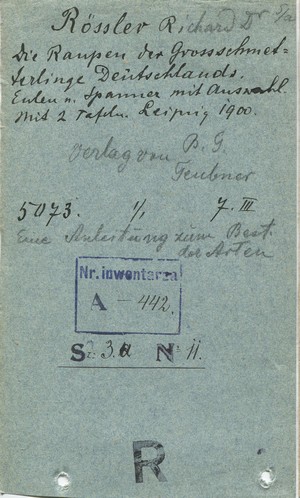 Rössler Richard Dr
Die Raupen der Grossschmet-
terlinge Deutschlands.
Eulen u. Spanner mit Auswahl.
Mit 2 Tafeln. Leipzig 1900.
Verlag von B. G.
Teubner
5073. 1/1 7. III
Eine Anleitung zum Best.
der Arten
Nr. inwentarza
A - 442.
Sz. 3.a No 11.
R